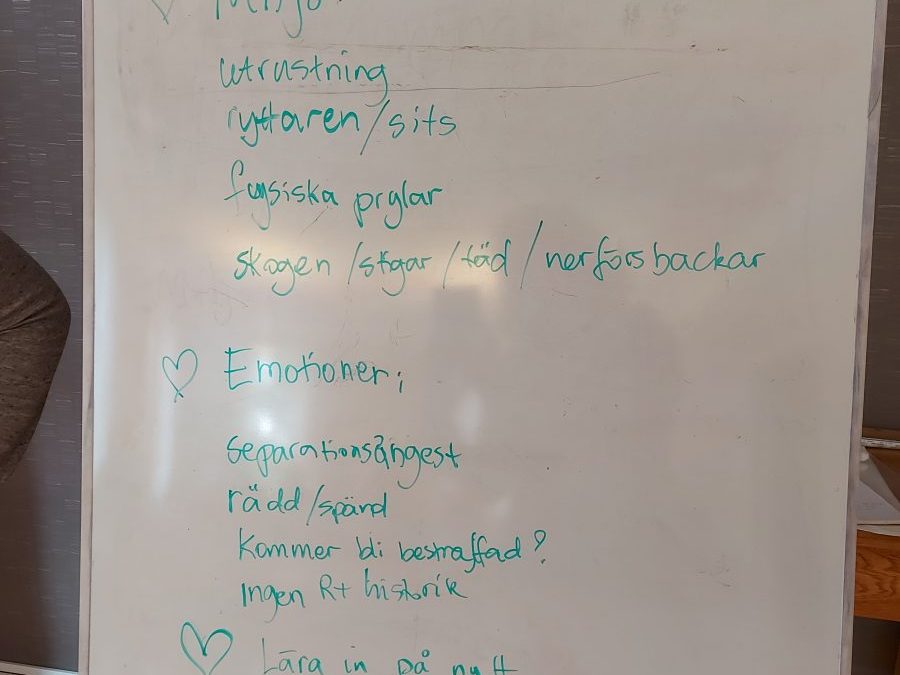 utrustning
ryttaren/sits
fysiska prylar
skogen/stigar/täd/nerförsbackar
Emotioner;
separationsångest
rädd/spänd
Kommer bli bestraffad?
Ingen R+ historik
Lära in på nytt